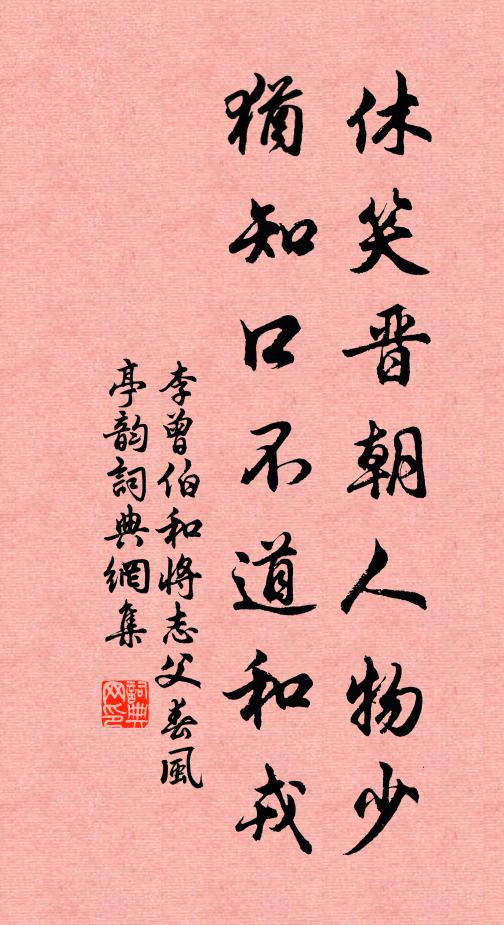 休笑晋朝人物少
猶知口不道和戎
李曾伯和将志父春風
亭韵詞典網集
詞典網印